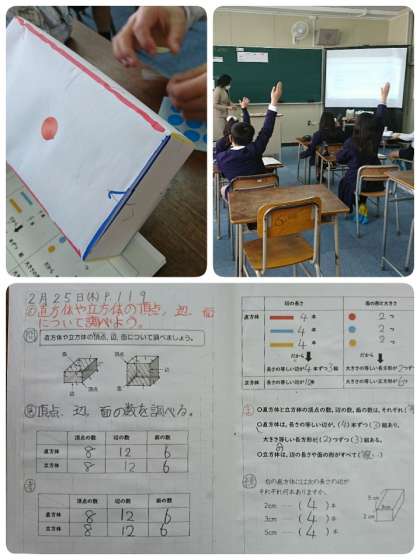 2月25日(木)P.119
め直方体や立方体の頂点、辺、面
について調べよう。
問
直方体や立方体の頂点、辺、面について調べましょう。
頂点、辺、面の数を調べる。
頂点の数 辺の数 面の数
直方体 8 12 6
立方体 8 12 6
頂点の数 辺の数 面の数
直方体 8 12 6
立方体 8 12 6
辺の長さ 面の形と大きさ
直方体
4本 2つ
4本 2つ
4本 2つ
だから だから
長さの等しい辺が4本ずつ3組 大きさの等しい長方形が2つずつ
立方体 長さの等しい辺が12本 大きさの等しい正方形が6つ
○直方体と立方体の頂点の数、辺の数、面の数は、それぞれ
○直方体は、長さの等しい辺が、(4)本ずつ(3)組あり、
大きさ等しい長方形が(2)つずつ(3)組ある。
○立方体は、辺の長さや面の形がすべて
右の直方体には次の長さの辺が
それぞれ何本ありますか。
2cm ……(4)本
3cm ……(4)本
5cm ……(4)本
5cm
3cm